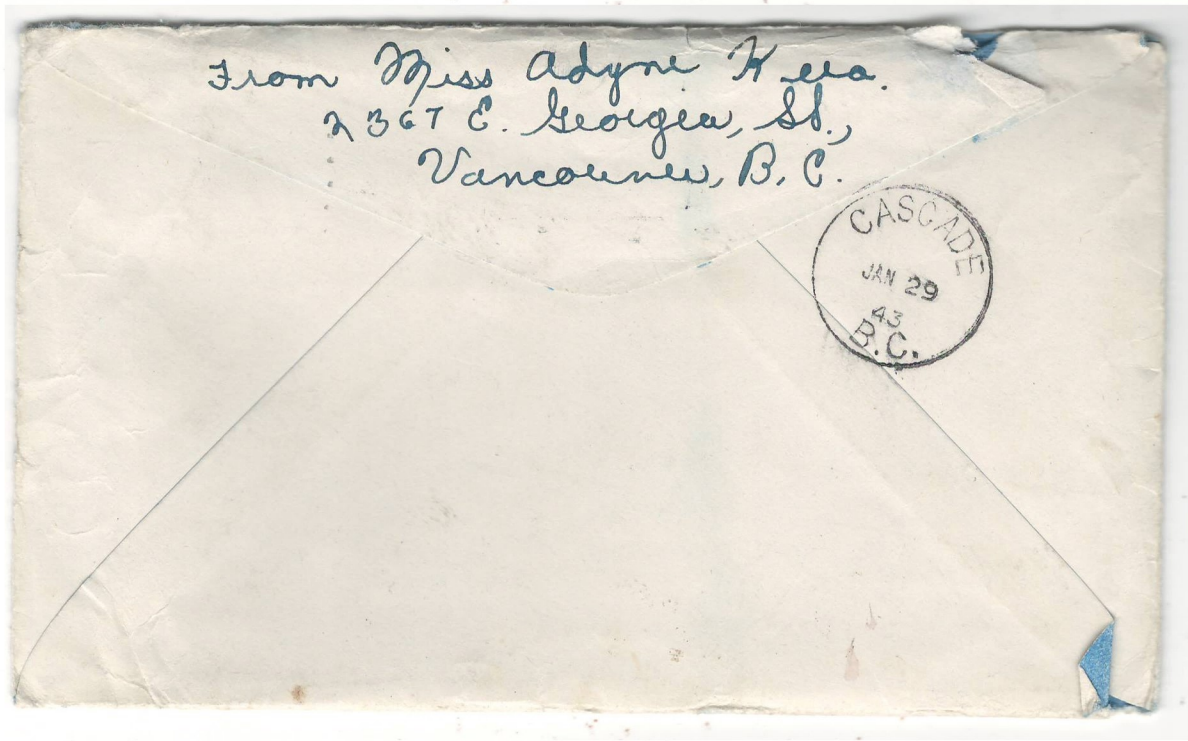 From Miss Adyne
2367 E. Georgia, St.,
Vancouver, B.C.
CASCADE
JAN 29
43
B.C.